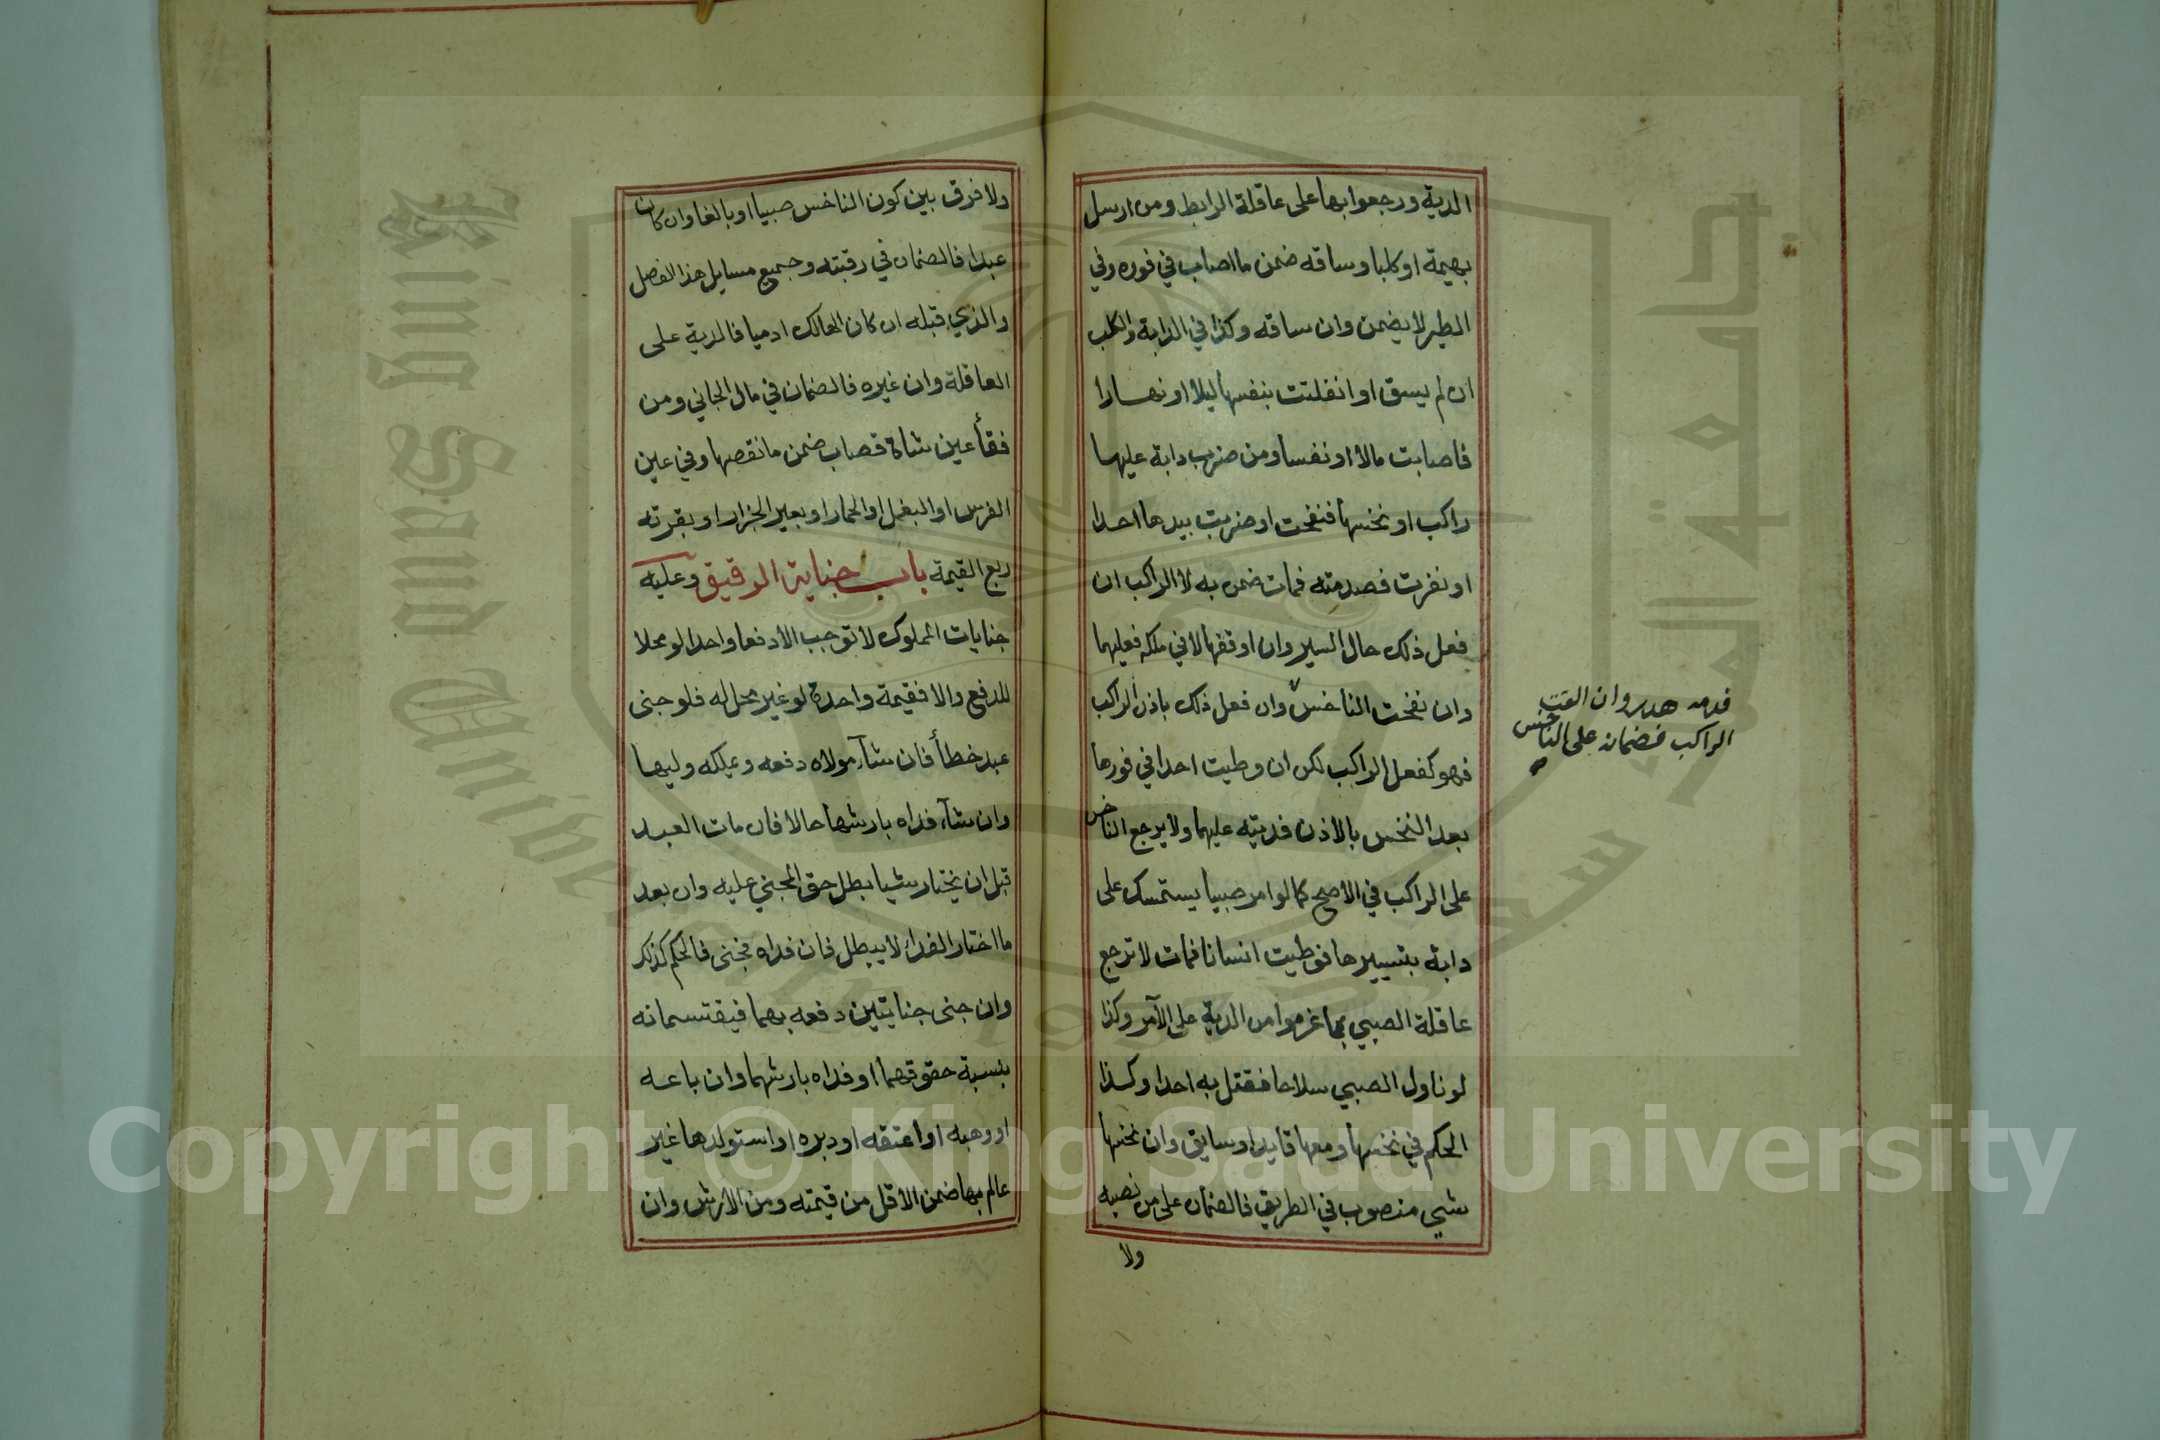 الدية ورجعوا بها على عاقلة الرابط ومن ارسل
بهيمة او كلبا وساقه ضمن ما اصاب في فوره وفي
الطير لا يضمن وان ساقه وكذا في الدابة والكلب
ان لم يسق او انفلتت بنفسها ليلا او نهارا
فاصابت مالا او نفسا ومن ضرب دابة عليها
راكب او نخسها فنفحت او ضربت بيدها احدا
او نفرت فصدمته فمات ضمن به لا الراكب ان
فعل ذلك حال السير وان اوقفها لا في ملكه فعليهما
وان نفحت الناخس وان فعل ذلك باذن الراكب
فهو كفعل الراكب لكن ان وطيت احدا في فورها
بعد النخس بالاذن فديته عليهما ولا يرجع الناخس
على الراكب في الاصح كما لو امر صبيا يستمسك على
دابة بتسييرها فوطيت انسانا فمات لا ترجع
عاقلة الصبي بما غرموا من الدية على الآمر وكذا
لو ناول الصبي سلاحا فقتل به احدا وكذا
الحكم في نخسها ومعها قايد او سايق وان نخسها
شيي منصوب في الطريق فالضمان على من نصبه
ولا
فدمه هدر وان القت
الراكب فضمانه على الناخس
ولا فرق بين كون الناخس صبيا او بالغا وان كان
عبدا فالضمان في رقبته وجميع مسايل هذا الفصل
والذي قبله ان كان الهالك ادميا فالدية على
العاقلة وان غيره فالضمان في مال الجاني ومن
فقأ عين شاة قصاب ضمن ما نقصها وفي عين
الفرس او البغل او الحمار او بعير الجزار او بقرته
ربع القيمة باب جناية الرقيق وعليه
جنايات المملوك لا توجب الا دفعا واحدا لو محلا
للدفع والا فقيمة واحدة لو غير محل له فلو جنى
عبد خطأ فان شآء مولاه دفعه ويملكه وليها
وان شآء فداه بارشها حالا فان مات العبد
قبل ان يختار شيا بطل حق المجني عليه وان بعد
ما اختار الفداء لا يبطل فان فداه فجنى فالحكم كذلك
وان جنى جنايتين دفعه بهما فيقتسمانه
بنسبة حقوقهما او فداه بارشهما وان باعه
او وهبه او اعتقه او دبره او استولدها غير
عالم بها ضمن الاقل من قيمته ومن الارش وان
King Saud University
جامعة الملك سعود
1957
Copyright © King Saud University